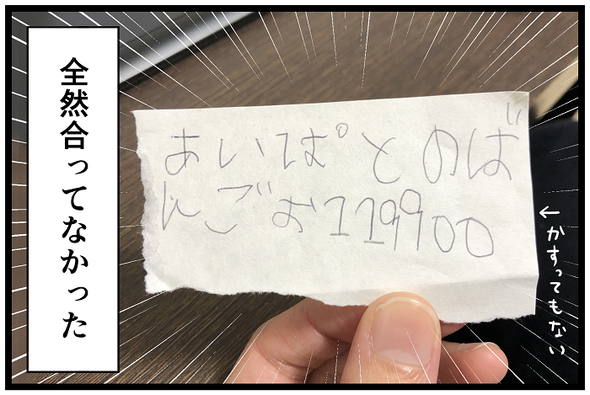 全然合ってなかった
あいぱとのば
んごお119900
←かすってもない